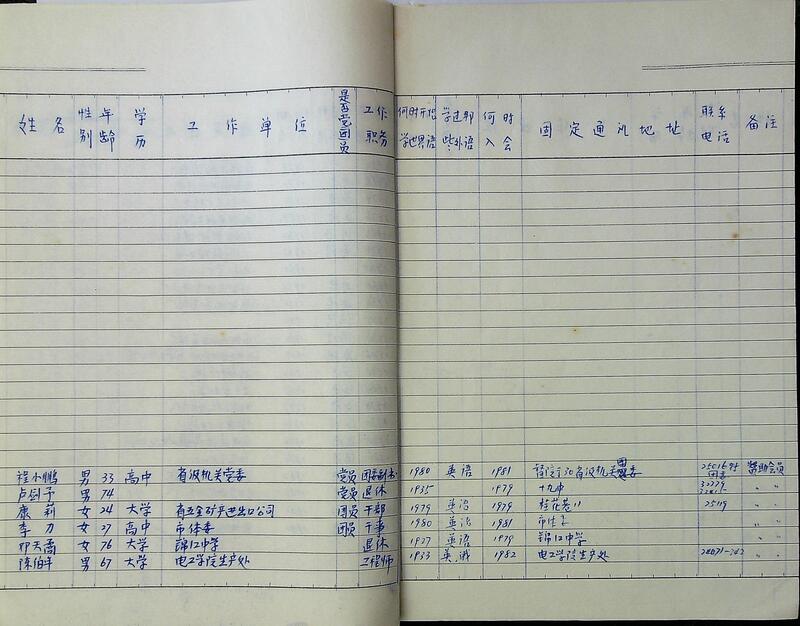 姓名 性别 年龄 学历 工作单位 是否党团员 工作职务 何时开始学世界语 学过那些外语 何时入会 固定通讯地址 联系电话 备注
程小鹏 男 33 高中 省级机关党委 党员 1980 英语 1981 省级机关团委 赞助会员
卢剑予 男 74 党员 退休 1935 1979 十九中 〃 〃
康莉 女 24 大学 省五金矿产进出口公司 团员 干部 1979 英语 1979 桂花巷11 25119 〃 〃
李力 女 27 高中 市体委 团员 干事 1980 英语 1981 〃 〃
女 76 大学 锦江中学 退休 1937 英语 1979 锦江中学 〃 〃
陈伯平 男 67 大学 电工学院生产处 工程师 1933 1982 电工学院生产处 〃 〃